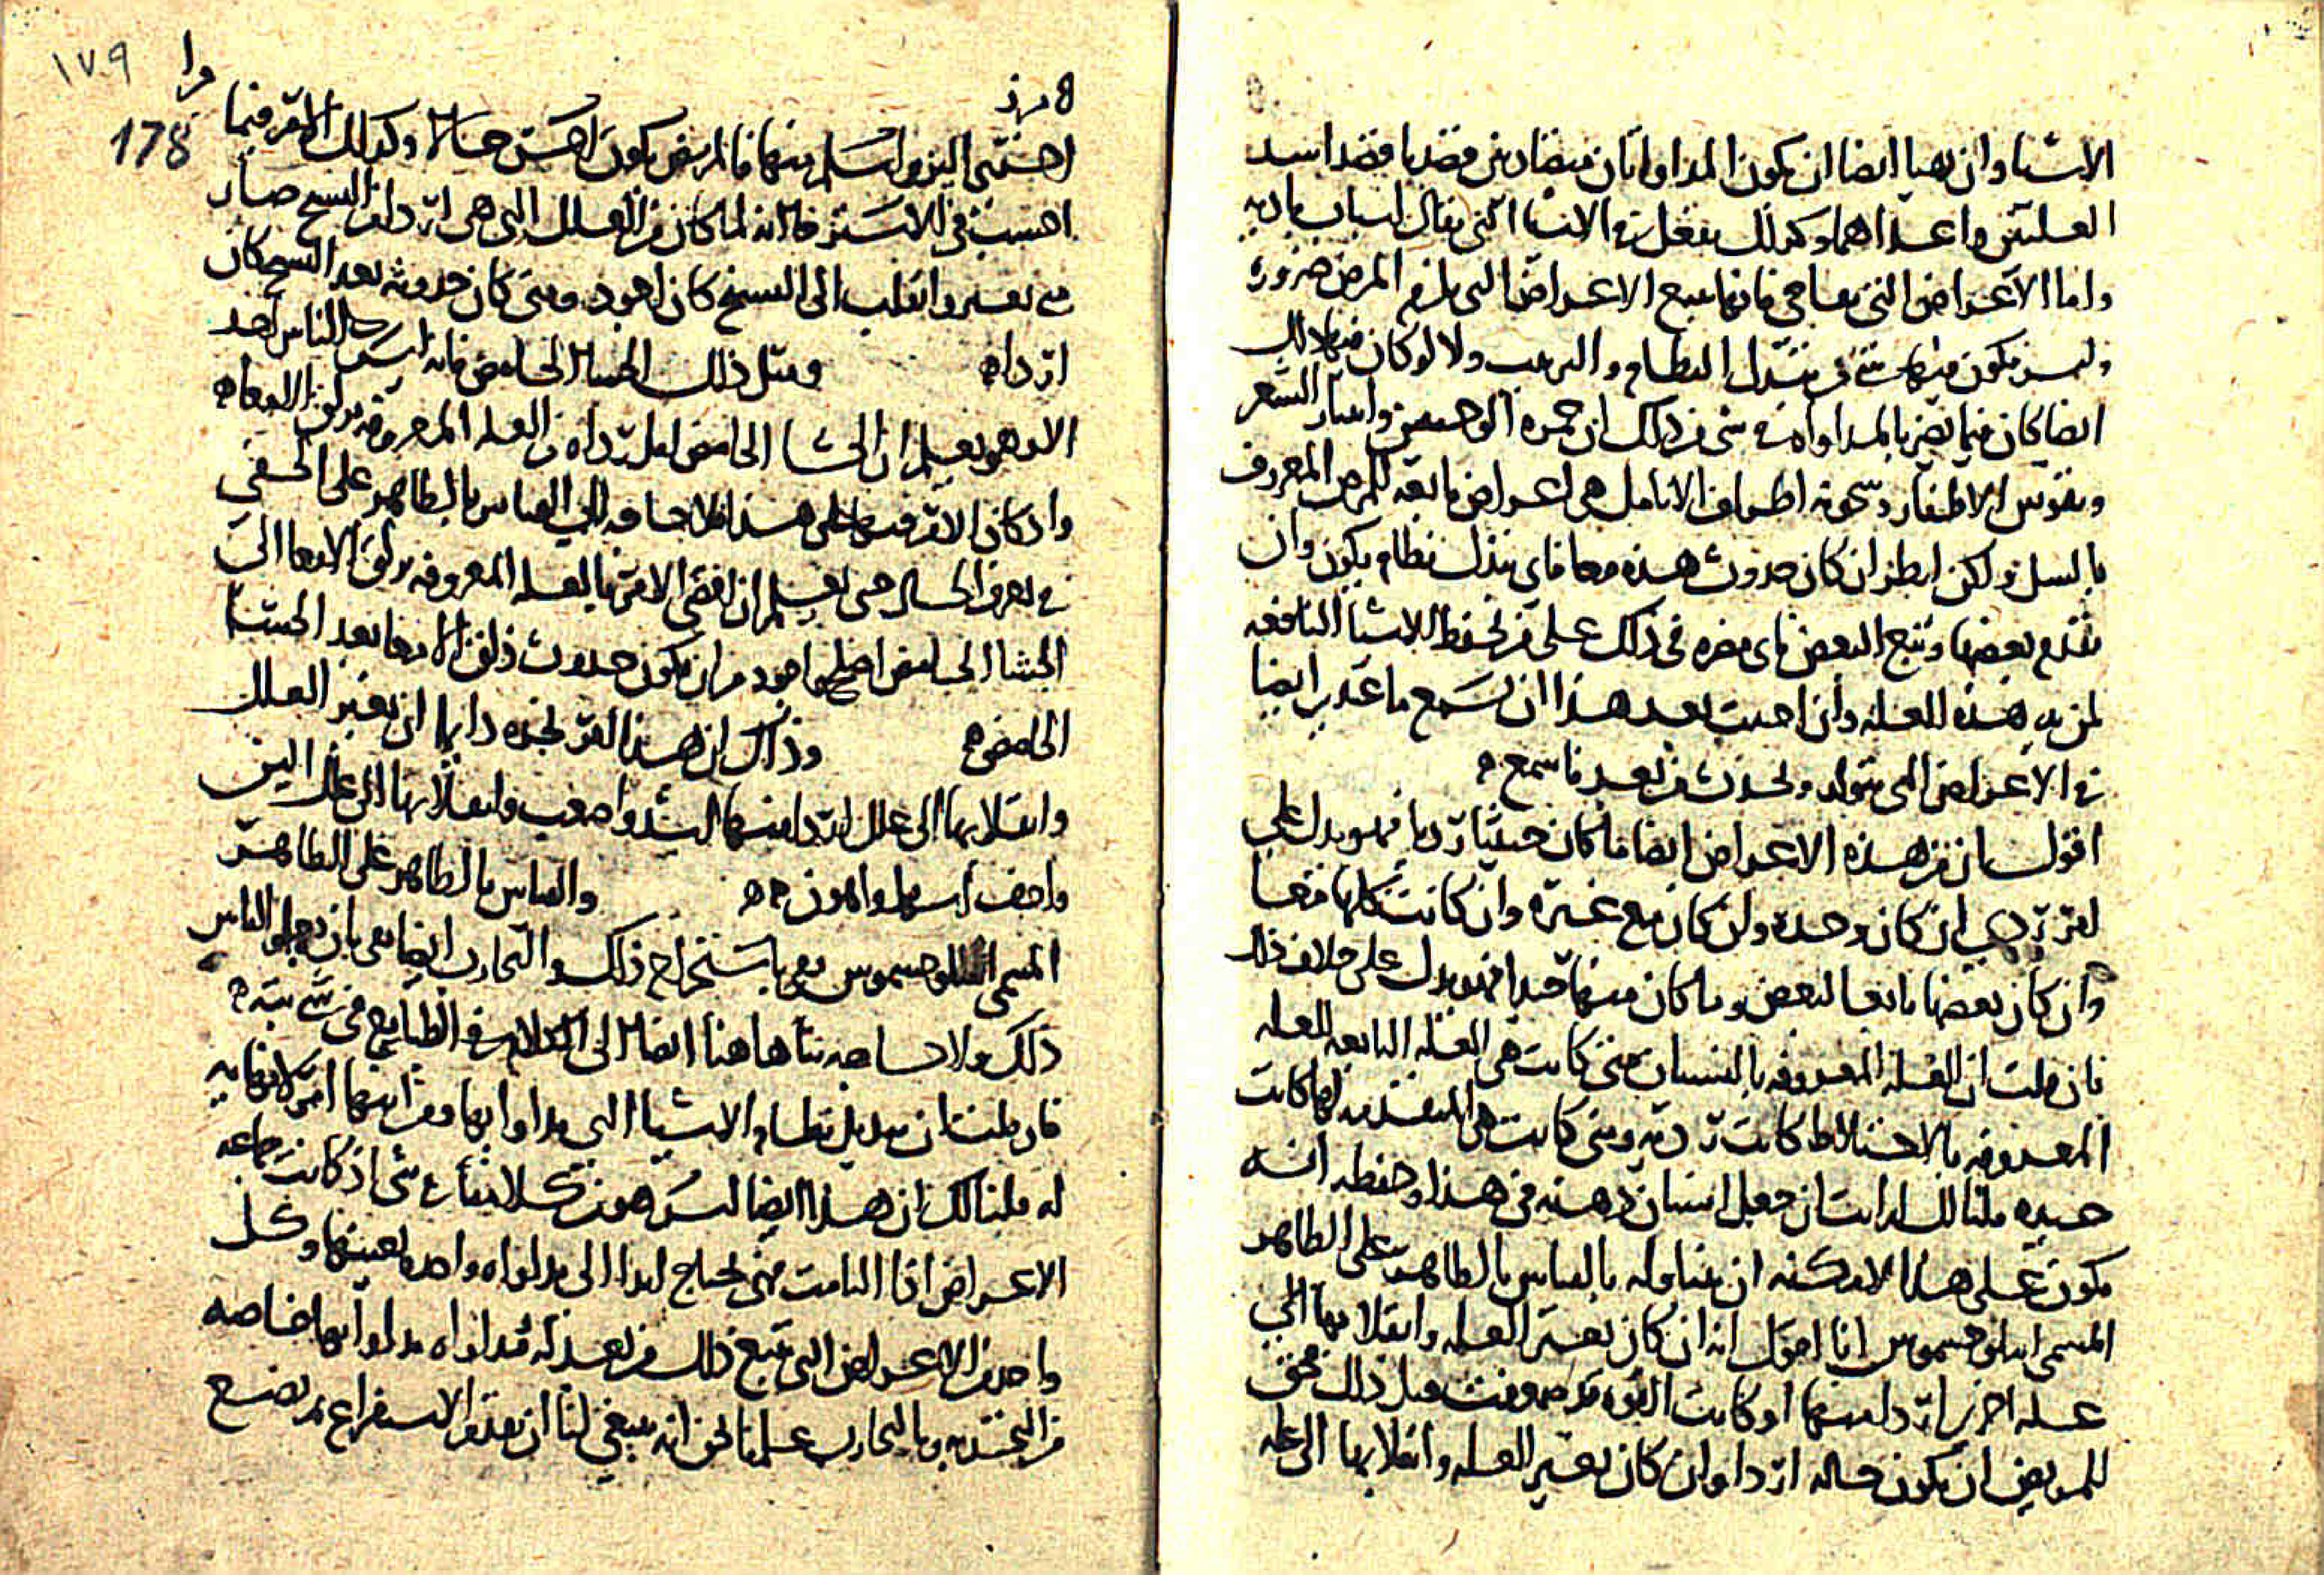 الاشيا وان تهيا ايضا ان يكون المداواتان متضادتين قصد بها قصد اشد
العلتين واعداهما وكذلك يفعل في الاشيا التي يقال لها اسباب باديه
واما الاعراض التي تعالج فانها تتبع الاعراض التي تلزم المرض ضروره
وليس يكون فيها شي من تبدل النظام والترتيب ولا لو كان فيها ذلك
ايضا كان مما يضر بالمداواه في شي من ذلك ان حمره الوجنتين وانتثار الشعر
وتقوس الاظفار وسخونه اطراف الانامل هي اعراض تابعه للمرض المعروف
بالسل ولكن انظر ان كان حدوث هذه معا فاي تبدل نظام يكون وان
تقدم بعضها وتبع البعض فاي مضره في ذلك على من يحفظ الاشيا النافعه
لمن به هذه العله وان احببت بعد هذا ان تسمع ما عندي ايضا
في الاعراض التي تتولد وتحدث من بعد فاسمع ه
اقول ان من هذه الاعراض ايضا ما كان خبيثا رديا فهو يدل على
امر ردي ان كان وحده وان كان مع غيره وان كانت كلها معا
وان كان بعضها تابعا لبعض وما كان منها جيدا فهو يدل على خلاف ذلك
فان قلت ان العله المعروفه بالنسيان متى كانت هي العله التابعه للعله
المعروفه بالاختلاط كانت رديه ومتى كانت هي المتقدمه لها كانت
جيده قلنا لك ان انسان جعل ذهنه في هذا وحفظه انه
يكون على هذا لامكنه ان يتناوله بالقياس بالظاهر على الظاهر
المسمى ابيلوجسموس انا اقول انه ان كان تغير العله وانقلابها الى
عله اخرى اردا منها او كانت القوه قد ضعفت قبل ذلك فحق
للمريض ان يكون حاله اردا وان كان تغير العله وانقلابها الى عله
١٧٩
178
اخرى الين واسلم منها فالمريض يكون احسن حالا وكذلك الامر فيما
احسب في الاستسقا فانه لما كان من العلل التي هي اردا من التشنج صار
متى تغير وانقلب الى التشنج كان اجود ومتى كان حدوثه بعد التشنج كان
اردا ه ومثل ذلك الجشا الحامض فانه ليس من الناس احد
الا وهو يعلم ان الجشا الحامض اقل رداه من العله المعروفه بزلق الامعا ه
واذ كان الامر فيها على هذا فلا حاجه الى القياس بالظاهر على الخفي
في تعرف الحال حتى نعلم ان افضى الامر بالعله المعروفه بزلق الامعا الى
الجشا الحامض اصلح واجود من ان يكون حدوث زلق الامعا بعد الجشا
الحامض ه وذلك ان هذا امر نجده دايما ان تغير العلل
وانقلابها الى علل اردا منها اشد واصعب وانقلابها الى علل الين
واخف اسهل واهون ه ه والقياس بالظاهر على الظاهر
المسمى ابيلوجسموس يفي باستخراج ذلك والتجارب ايضا تفي بان يعلم الناس
ذلك ولا حاجه بنا هاهنا ايضا الى الكلام في الطبايع في شي بته ه
فان قلت ان تبديل نظام الاشيا التي مداواتها وقرانها امر لا نهايه
له قلنا لك ان هذا ايضا ليس هو مشكلا بنا في شي اذ كانت جماعه
الاعراض اذا التامت فهي تحتاج ابدا الى مداواه واحده بعينها وكل
واحد من الاعراض التي تتبع ذلك من بعد له مداواه مداواتها خاصه
من التجربه وبالتجارب علمنا نحن انه ينبغي لنا ان نقدم الاستفراغ ثم نضع